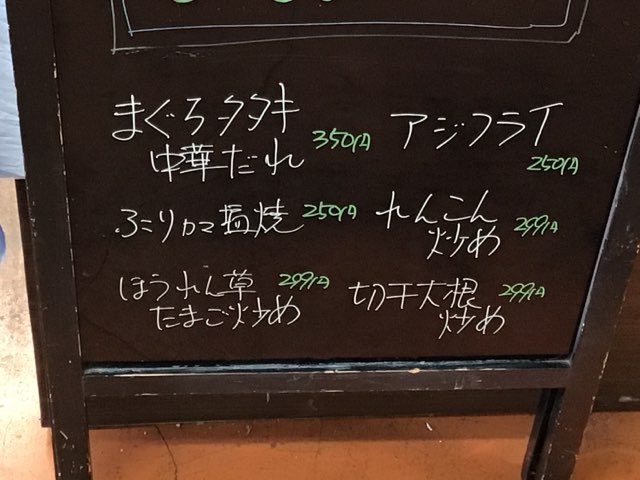 まぐろタタキ
中華だれ 350円
アジフライ
250円
ぶりカマ塩焼 250円
れんこん
炒め 299円
ほうれん草 299円
たまご炒め
切干大根 299円
炒め